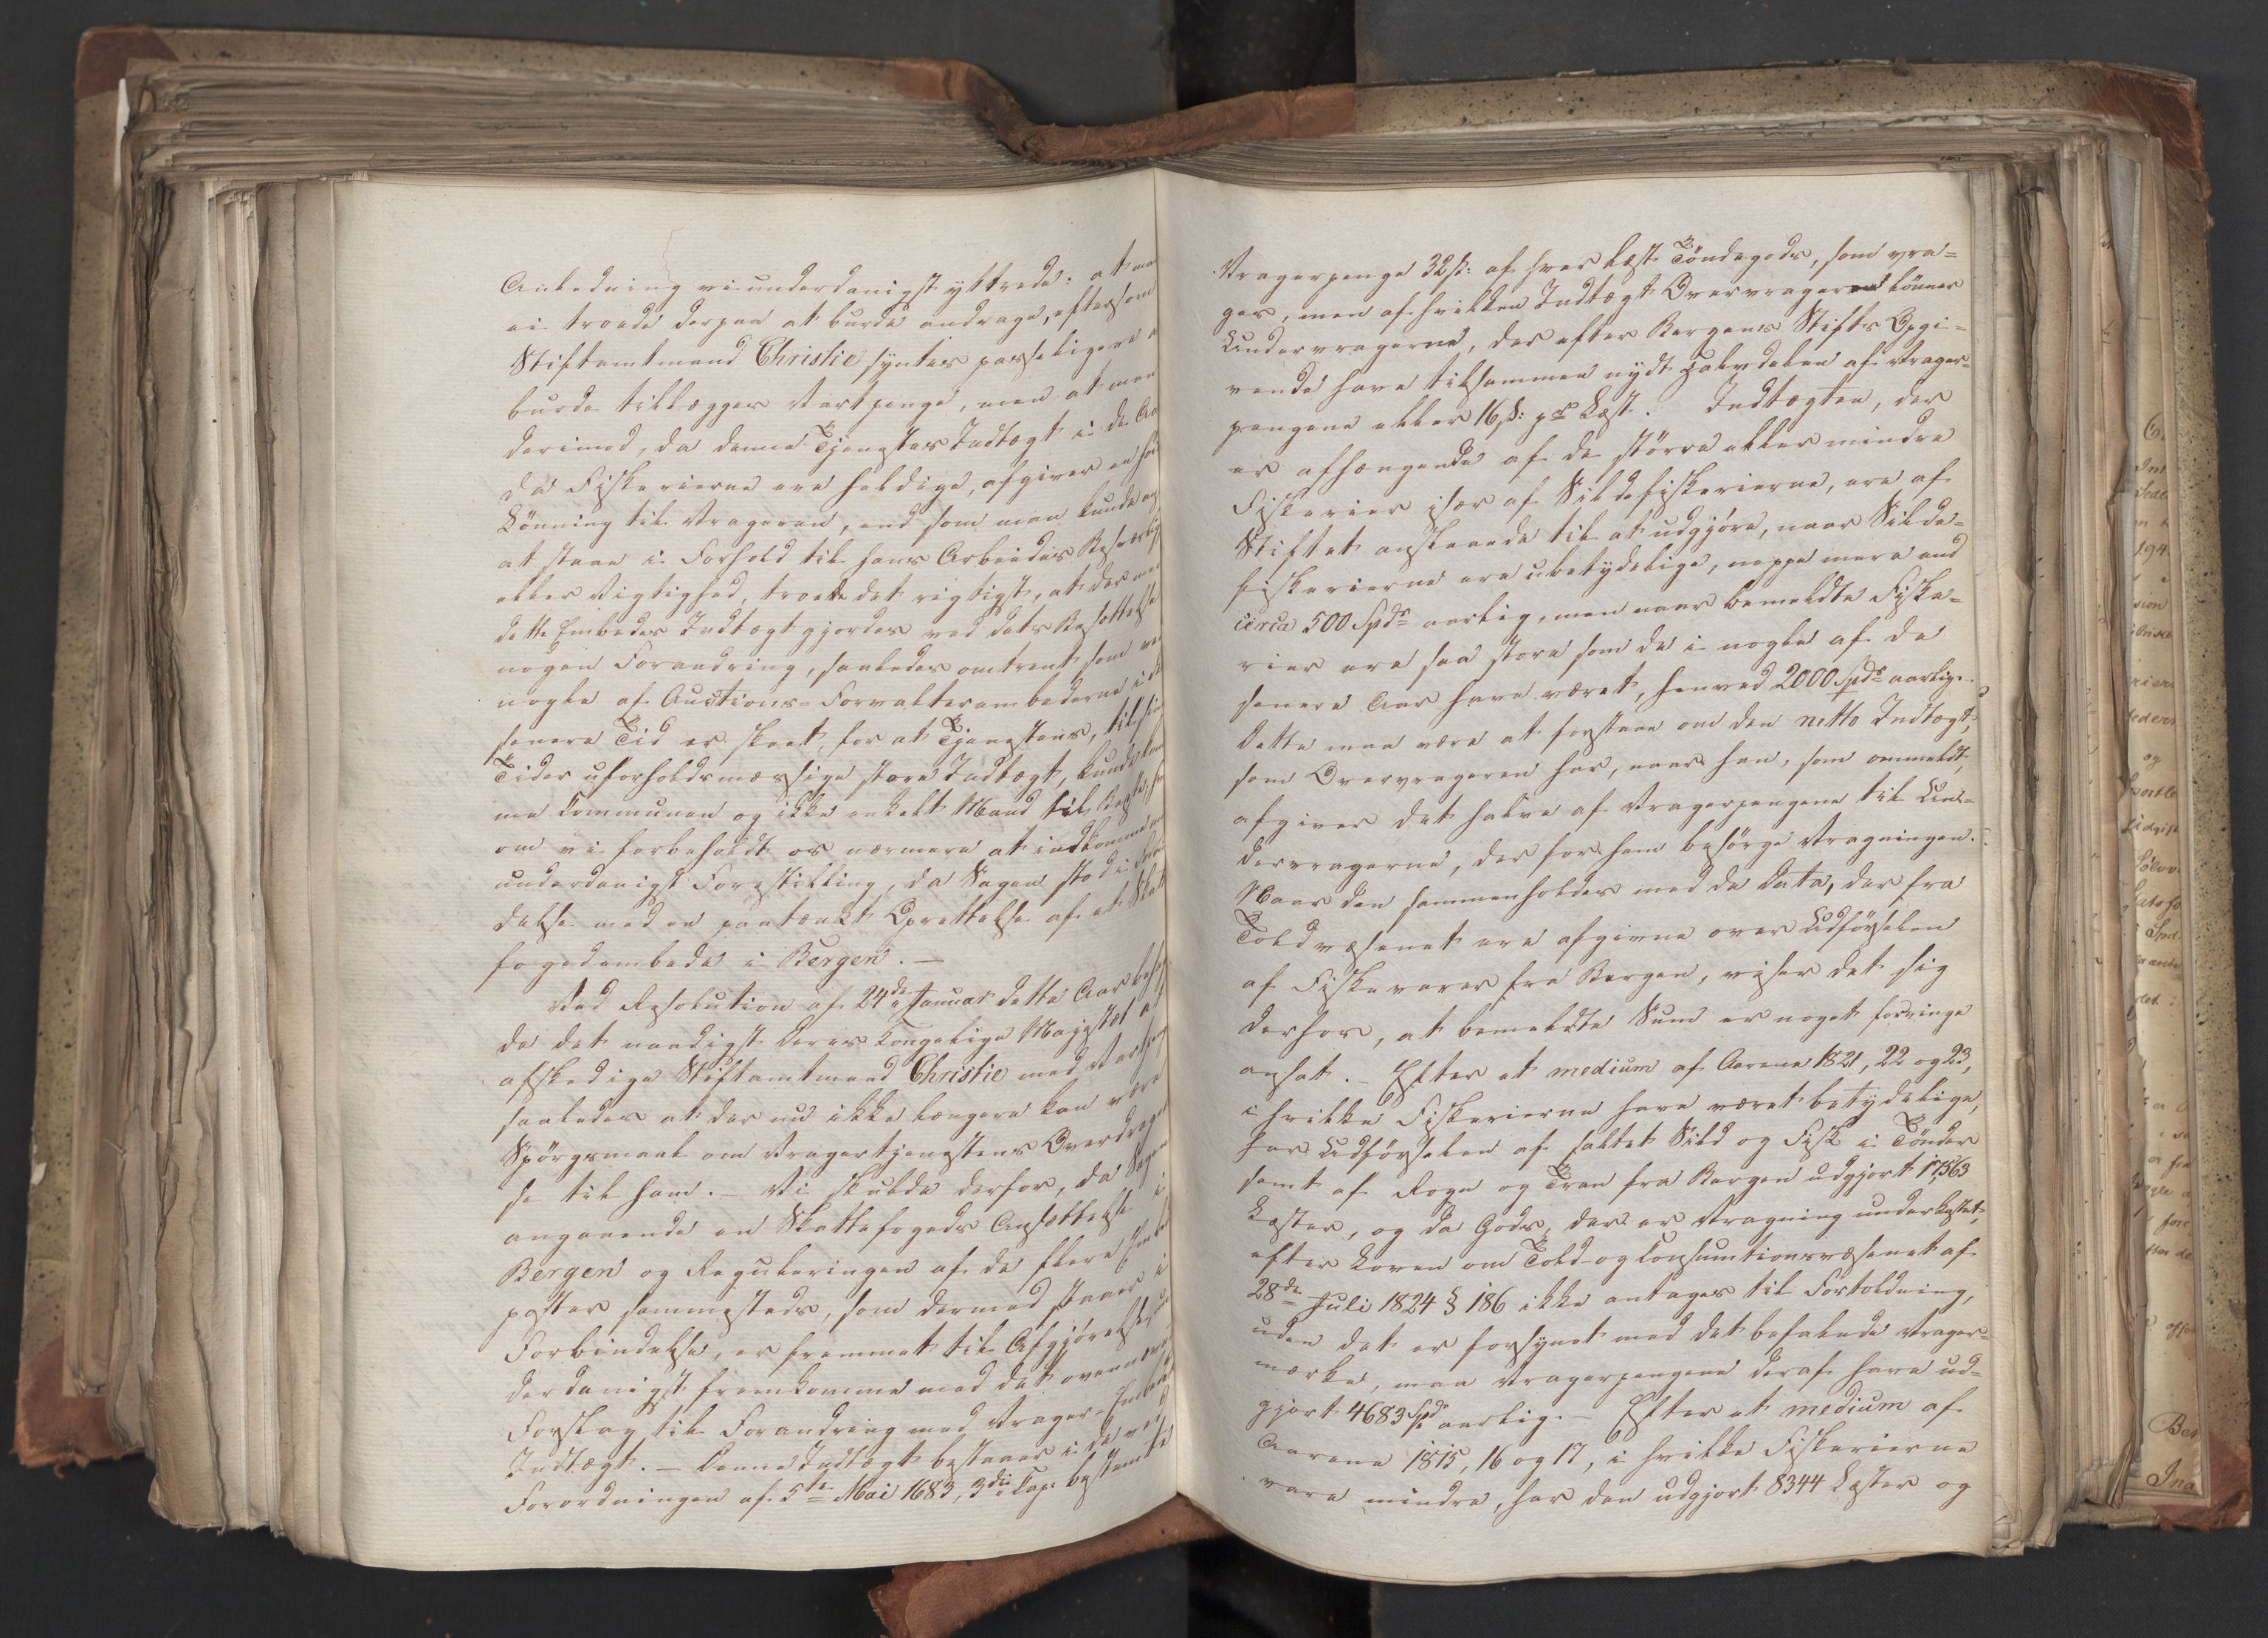 Anledning vi underdanigst yttrede: at man
ei troede derpaa at burde andrage, eftersom
Stiftamtmand Christie syntes passeligere a
burde tillægges Vartpenge, men at man
derimod, da denne Tjenestes Indtægt i de Aa
da Fiskerierne ere heldige, afgiver en høi
Lönning til Vrageren, end som man kunde ans
at staae i Forhold til hans Arbeides Besværlig
eller Vigtighed, troede det rigtigst, at der med
dette Embedes Indtægt gjordes ved dets Besættelse
nogen Forandring, saaledes omtrent som ved
nogle af Auctions-Forvalterembederne i de
senere Tid er skeet, for at Tjenestens, til sine
Tider uforholdsmæssige store Indtægt, kunde kom
me Kommunen og ikke enkelt Mand til Beste,
om vi forbeholdt os nærmere at indkomme med
underdanigst Forestilling, da Sagen stod i Forbin
delse med en paatænkt Oprettelse af et Skatte
fogedembede i Bergen. —
Ved Resolution af 24de Januar dette Aar behag
de det naadigst Deres Kongelige Majestæt at
afskedige Stiftamtmand Christie med Vartpenge
saaledes at der nu ikke længere kan være
Spörgsmaal om Vragertjenestens Overdragel
se til ham. — Vi skulde derfor, da Sagen
angaaende en Skattefogeds Ansættelse i
Bergen og Reguleringen af de flere Embeds
poster sammesteds, som dermed staaer i
Forbindelse, er fremmet til Afgjörelse, un
derdanigst fremkomme med det ovennævnte
Forslag til Forandring med Vrager-Embedets
Indtægt. — Denne Indtægt bestaaer i de ved
Forordningen af 5te Mai 1683, 3die Cap: bestemte
Vragerpenge 32 ß: af hver Læst Töndegods, som vra=
ges, men af hvilken Indtægt Overvrageren lönner
Undervragerne, der efter Bergens Stifts Opgi=
vende have tilsammen nydt Halvdelen af Vrager=
pengene eller 16 ß: pr Læst. Indtægten, der
er afhængende af de större eller mindre
Fiskerier især af Sildefiskerierne, ere af
Stiftet anslaaede til at udgjöre, naar Silde=
fiskerierne ere ubetydelige, neppe mere end
circa 500 Spdr aarlig, men naar bemeldte Fiske=
rier ere saa store som de i nogle af de
senere Aar have været, henved 2000 Spdr aarlig.
Dette maa være at forstaae om den netto Indtægt,
som Overvrageren har, naar han, som ommeldt,
afgiver det halve af Vragerpengene til Un=
dervragerne, der for ham besörge Vragningen.
Naar den sammenholdes med de Data, der fra
Toldvæsenet ere afgivne over Udförselen
af Fiskevarer fra Bergen, viser det sig
derhos, at bemeldte Sum er noget forringe
ansat. — Efter et medium af Aarene 1821, 22 og 23,
i hvilke Fiskerierne have været betydelige,
har Udförselen af saltet Sild og Fisk i Tönder
samt af Rogn og Tran fra Bergen udgjort 17,563
Læster, og da Gods, der er Vragning underkastet,
efter Loven om Told- og Consumtionsvæsenet af
28de Juli 1824 § 186 ikke antages til Fortoldning,
uden det er forsynet med det befalede Vrager=
mærke, maa Vragerpengene deraf have ud=
gjort 4683 Spdr aarlig. — Efter et medium af
Aarene 1815, 16 og 17, i hvilke Fiskerierne
vare mindre, har den udgjort 8344 Læster og